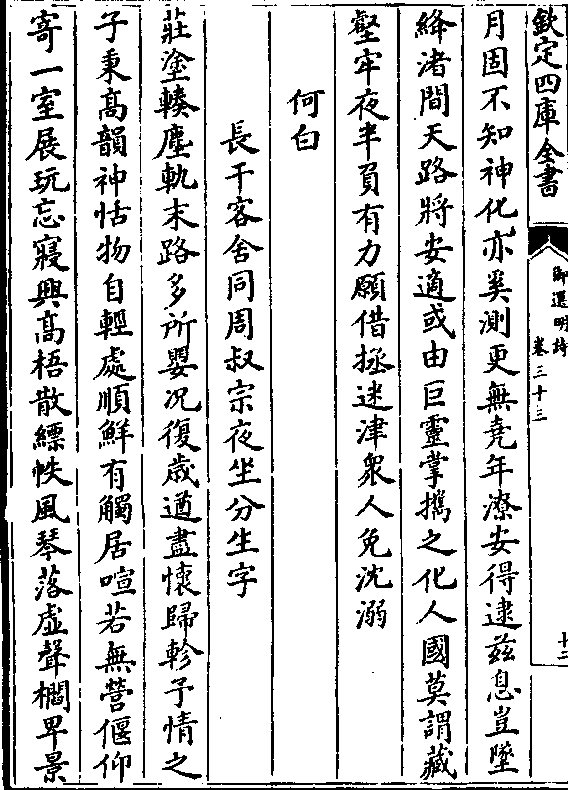 欽定四庫全書
御選明詩 卷三十三
十二
月固不知神化亦奚測更無堯年潦安得逮兹息豈墜
絳渚間天路將安適或由巨靈掌擕之化人國莫謂藏
壑牢夜半負有力願借拯迷津衆人免沈溺
何白
長干客舍同周叔宗夜坐分生字
莊塗轃塵軌末路多所嬰况復歲遒盡懷歸軫予情之
子秉高韻神怙物自輕處順鮮有觸居喧若無營偃仰
寄一室展玩忘寢興高梧散縹帙風琴落虛聲櫩卑景